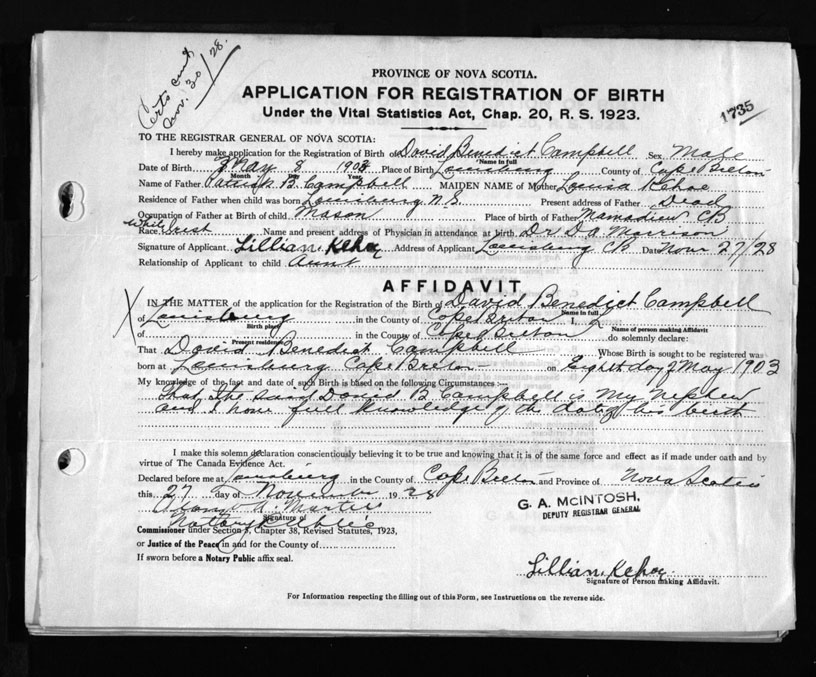 Certs sent
Nov. 30/28.
PROVINCE OF NOVA SCOTIA.
APPLICATION FOR REGISTRATION OF BIRTH
1735
Under the Vital Statistics Act, Chap. 20, R. S. 1923.
TO THE REGISTRAR GENERAL OF NOVA SCOTIA:
I hereby make application for the Registration of Birth of David Benedict Campbell Sex Male
Name in full
Date of Birth May 8 1903 Place of Birth Louisburg County of Cape Breton
Month Day Year
Name of Father Patrick B. Campbell MAIDEN NAME of Mother Louisa Kehoe
Residence of Father when child was born Louisburg N.S. Present address of Father Dead
Occupation of Father at Birth of child Mason Place of birth of Father Mainadieu CB
Race White Irish Name and present address of Physician in attendance at birth. Dr D A Morrison
Signature of Applicant Lillian Kehoe Address of Applicant Louisburg CB Date Nov 27/28
Relationship of Applicant to child Aunt
AFFIDAVIT
IN THE MATTER of the application for the Registration of the Birth of David Benedict Campbell
Name in full
X of Louisburg in the County of Cape Breton I,
Birth place Name of person making Affidavit
of in the County of Cape Breton do solemnly declare:
Present residence
That David Benedict Campbell Whose Birth is sought to be registered was
born at Louisburg Cape Breton on Eighth day of May 1903
My knowledge of the fact and date of such Birth is based on the following Circumstances:—
That the said David B Campbell is my Nephew
and I have full knowledge of the date of his birth
I make this solemn declaration conscientiously believing it to be true and knowing that it is of the same force and effect as if made under oath and by
virtue of The Canada Evidence Act.
Declared before me at Louisburg in the County of Cape Breton and Province of Nova Scotia
this 27 day of November 1928
G. A. McINTOSH,
DEPUTY REGISTRAR GENERAL
Signature of
Notary Public
Commissioner under Section 3, Chapter 38, Revised Statutes, 1923,
or Justice of the Peace in and for the County of
If sworn before a Notary Public affix seal.
Lillian Kehoe
Signature of Person making Affidavit.
For Information respecting the filling out of this Form, see Instructions on the reverse side.